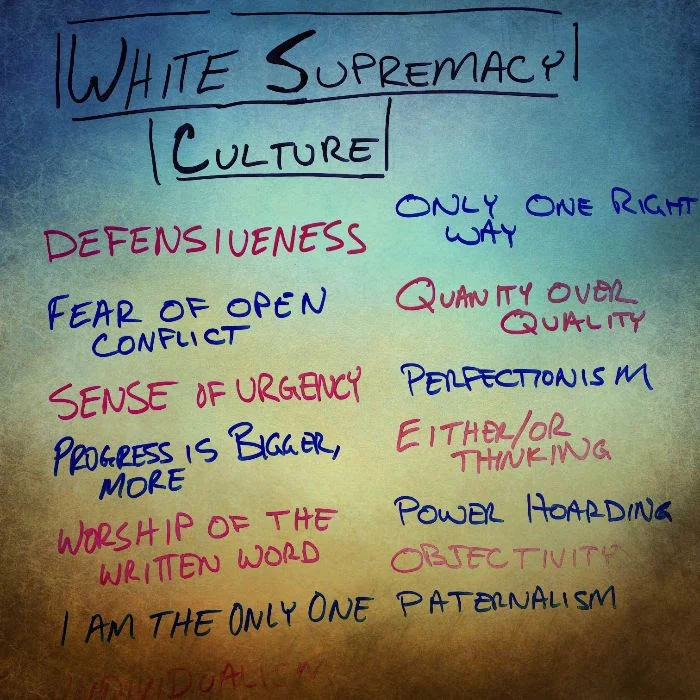 WHITE SUPREMACY
CULTURE
DEFENSIVENESS
FEAR OF OPEN
CONFLICT
SENSE OF URGENCY
PROGRESS IS BIGGER,
MORE
WORSHIP OF THE
WRITTEN WORD
I AM THE ONLY ONE
INDIVIDUALISM
ONLY ONE RIGHT
WAY
QUANITY OVER
QUALITY
PERFECTIONISM
EITHER/OR
THINKING
POWER HOARDING
OBJECTIVITY
PATERNALISM